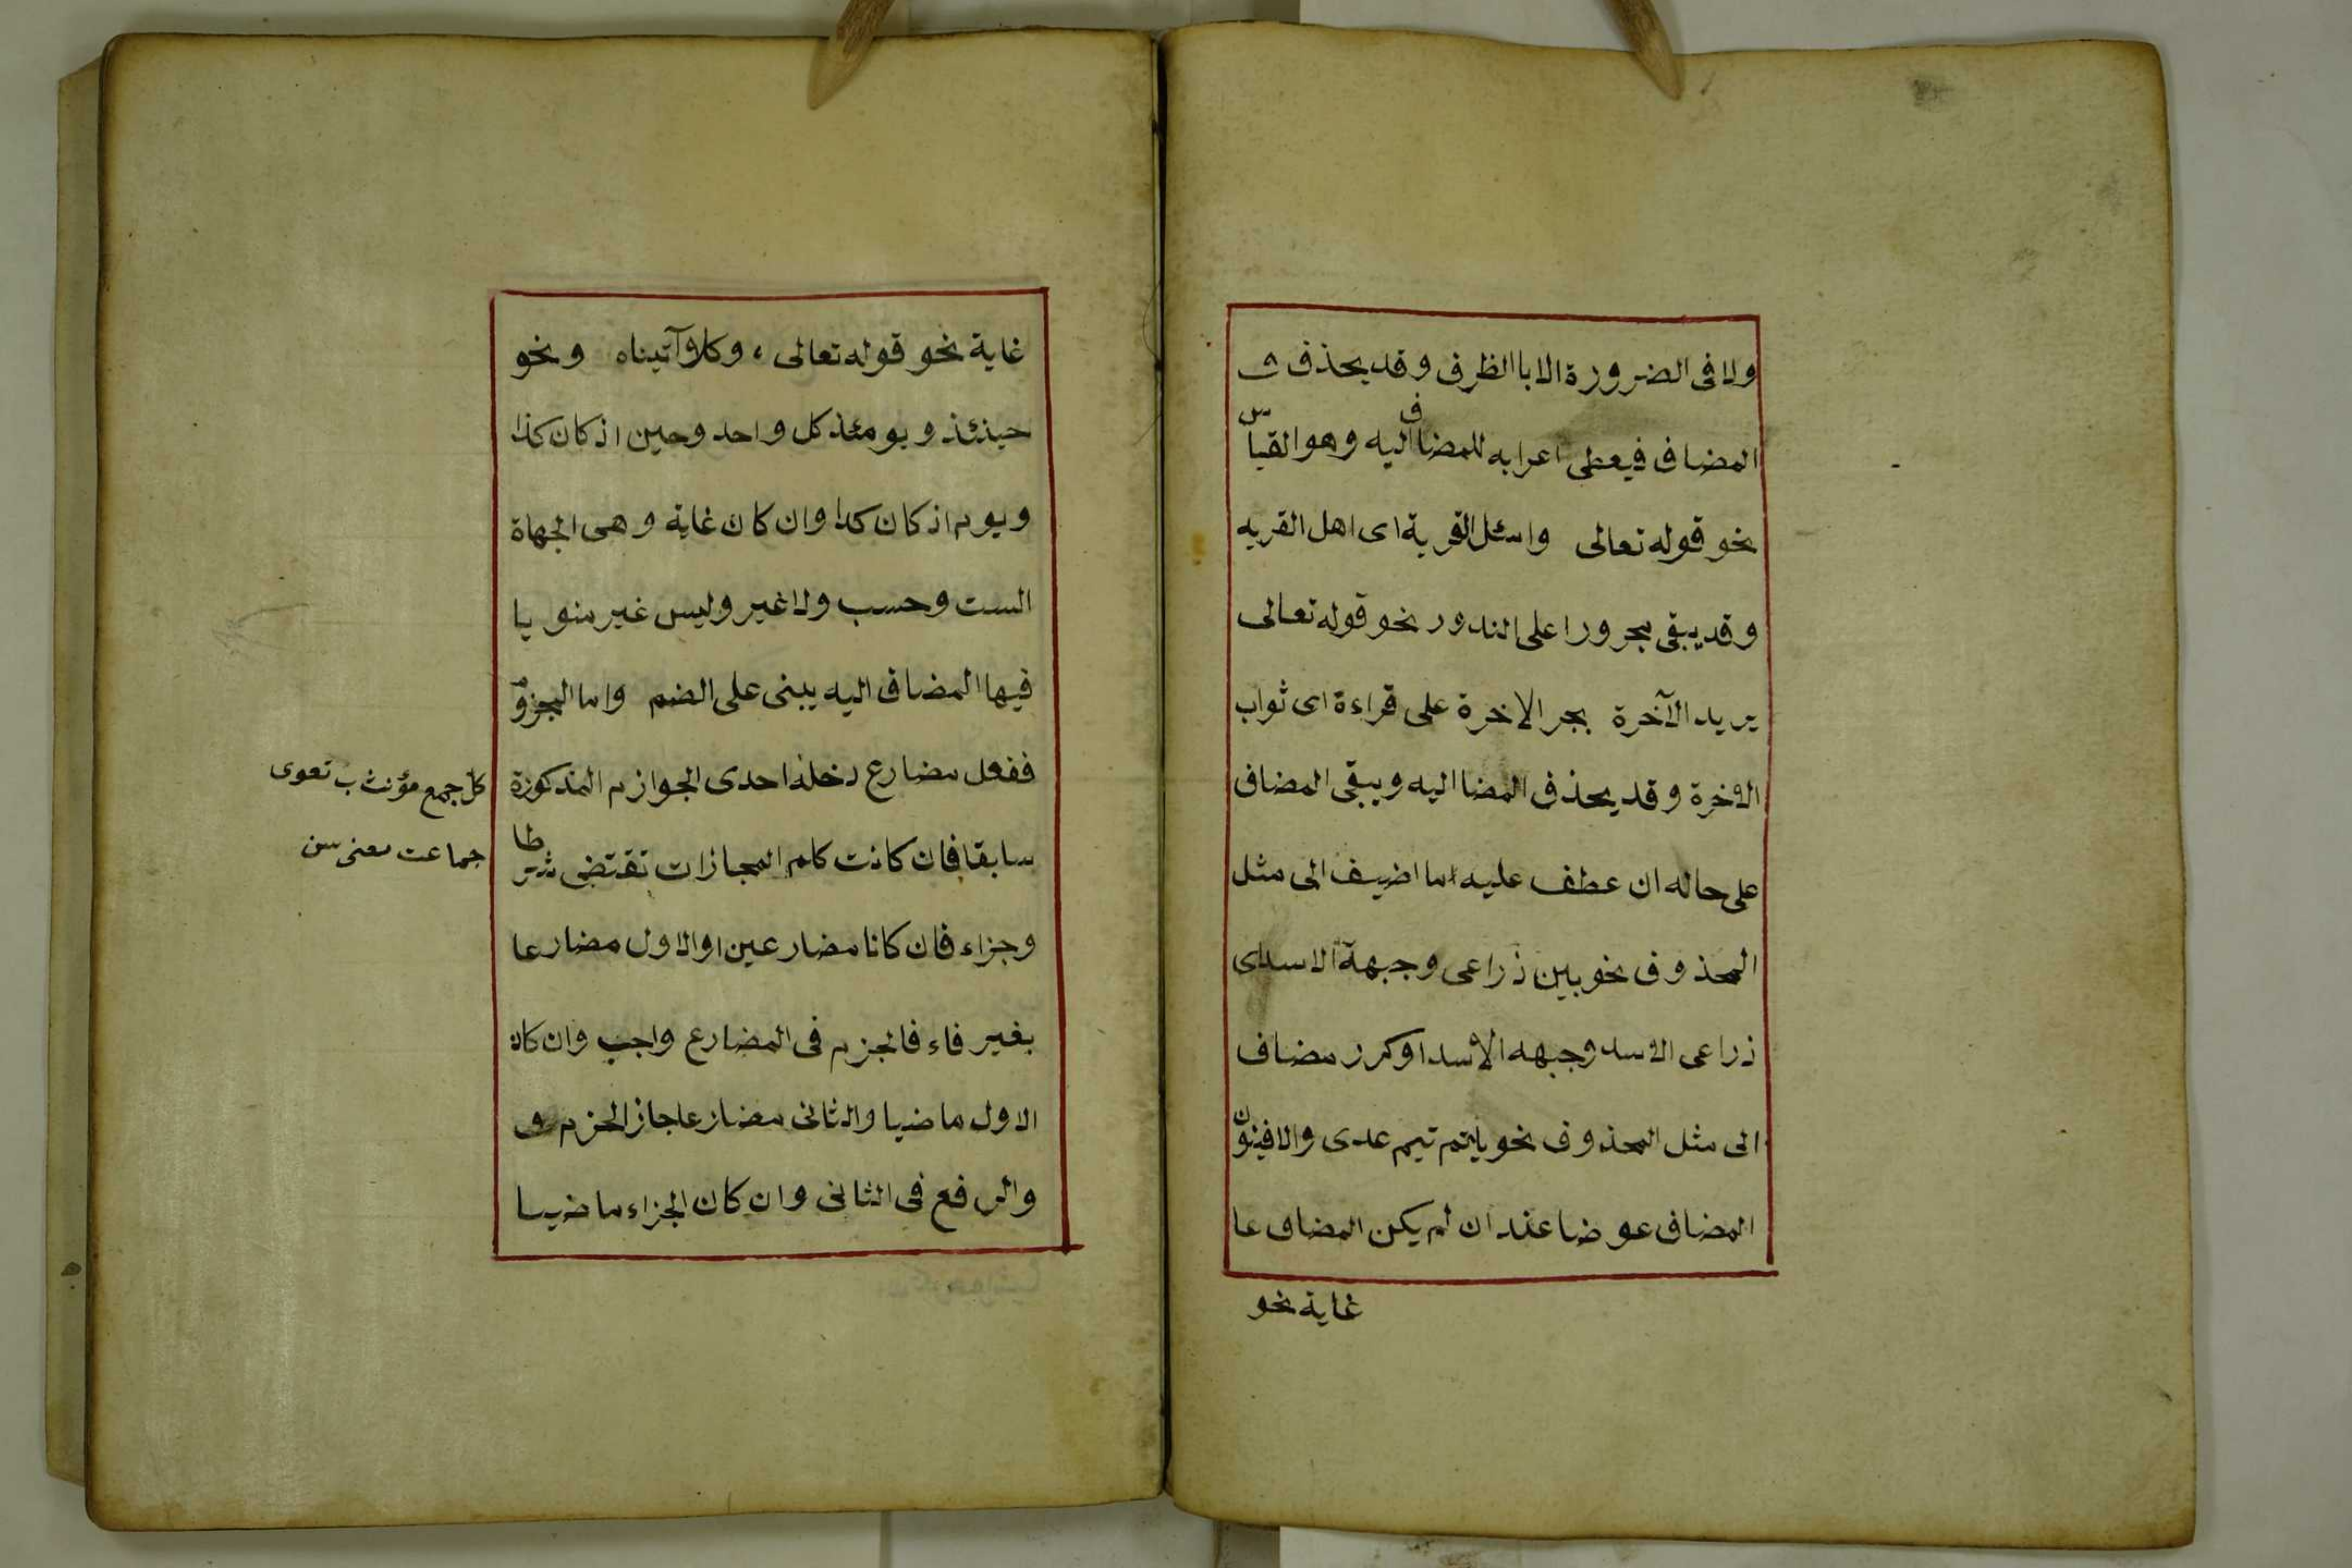 ولا فى الضرورة الا باالظرف وقد يحذف
المضاف فيعطى اعرابه للمضاف اليه وهو القياس
نحو قوله تعالى واسئل القرية اى اهل القريه
وقد يبقى مجرورا على الندور نحو قوله تعالى
يريد الآخرة بجر الاخرة على قراءة اى ثواب
الاخرة وقد يحذف المضا اليه ويبقى المضاف
على حاله ان عطف عليه اما اضيف الى مثل
المحذوف نحو بين ذراعى وجبهة الاسد اى
ذراعى الاسد وجبهه الاسد او كرر مضاف
الى مثل المحذوف نحو يا تيم تيم عدى والا فينون
المضاف عوضا عند ان لم يكن المضاف عا
غاية نحو
غاية نحو قوله تعالى، وكلا وآتيناه ونحو
حينئذ ويومئذ كل واحد وحين اذ كان كذا
ويوم اذ كان كذا وان كان غاية وهى الجهاة
الست وحسب ولا غير وليس غير منويا
فيها المضاف اليه يبنى على الضم واما المجزوم
ففعل مضارع دخله احدى الجوازم المذكورة
سابقا فان كانت كلم المجازات تقتضى شرطا
وجزاء فان كانا مضارعين او الاول مضارعا
بغير فاء فالجزم فى المضارع واجب وان كان
الاول ماضيا والثانى مضارعا جاز الجزم و
والرفع فى الثانى وان كان الجزاء ماضيا
كل جمع مؤنث ب تعوى
جماعت معنى سن